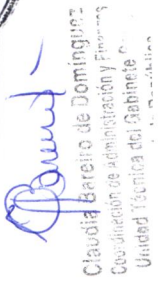 Claudia Bareiro de Domínguez
Coordinación de Administración y Finanzas
Unidad Técnica del Gabinete
de la República